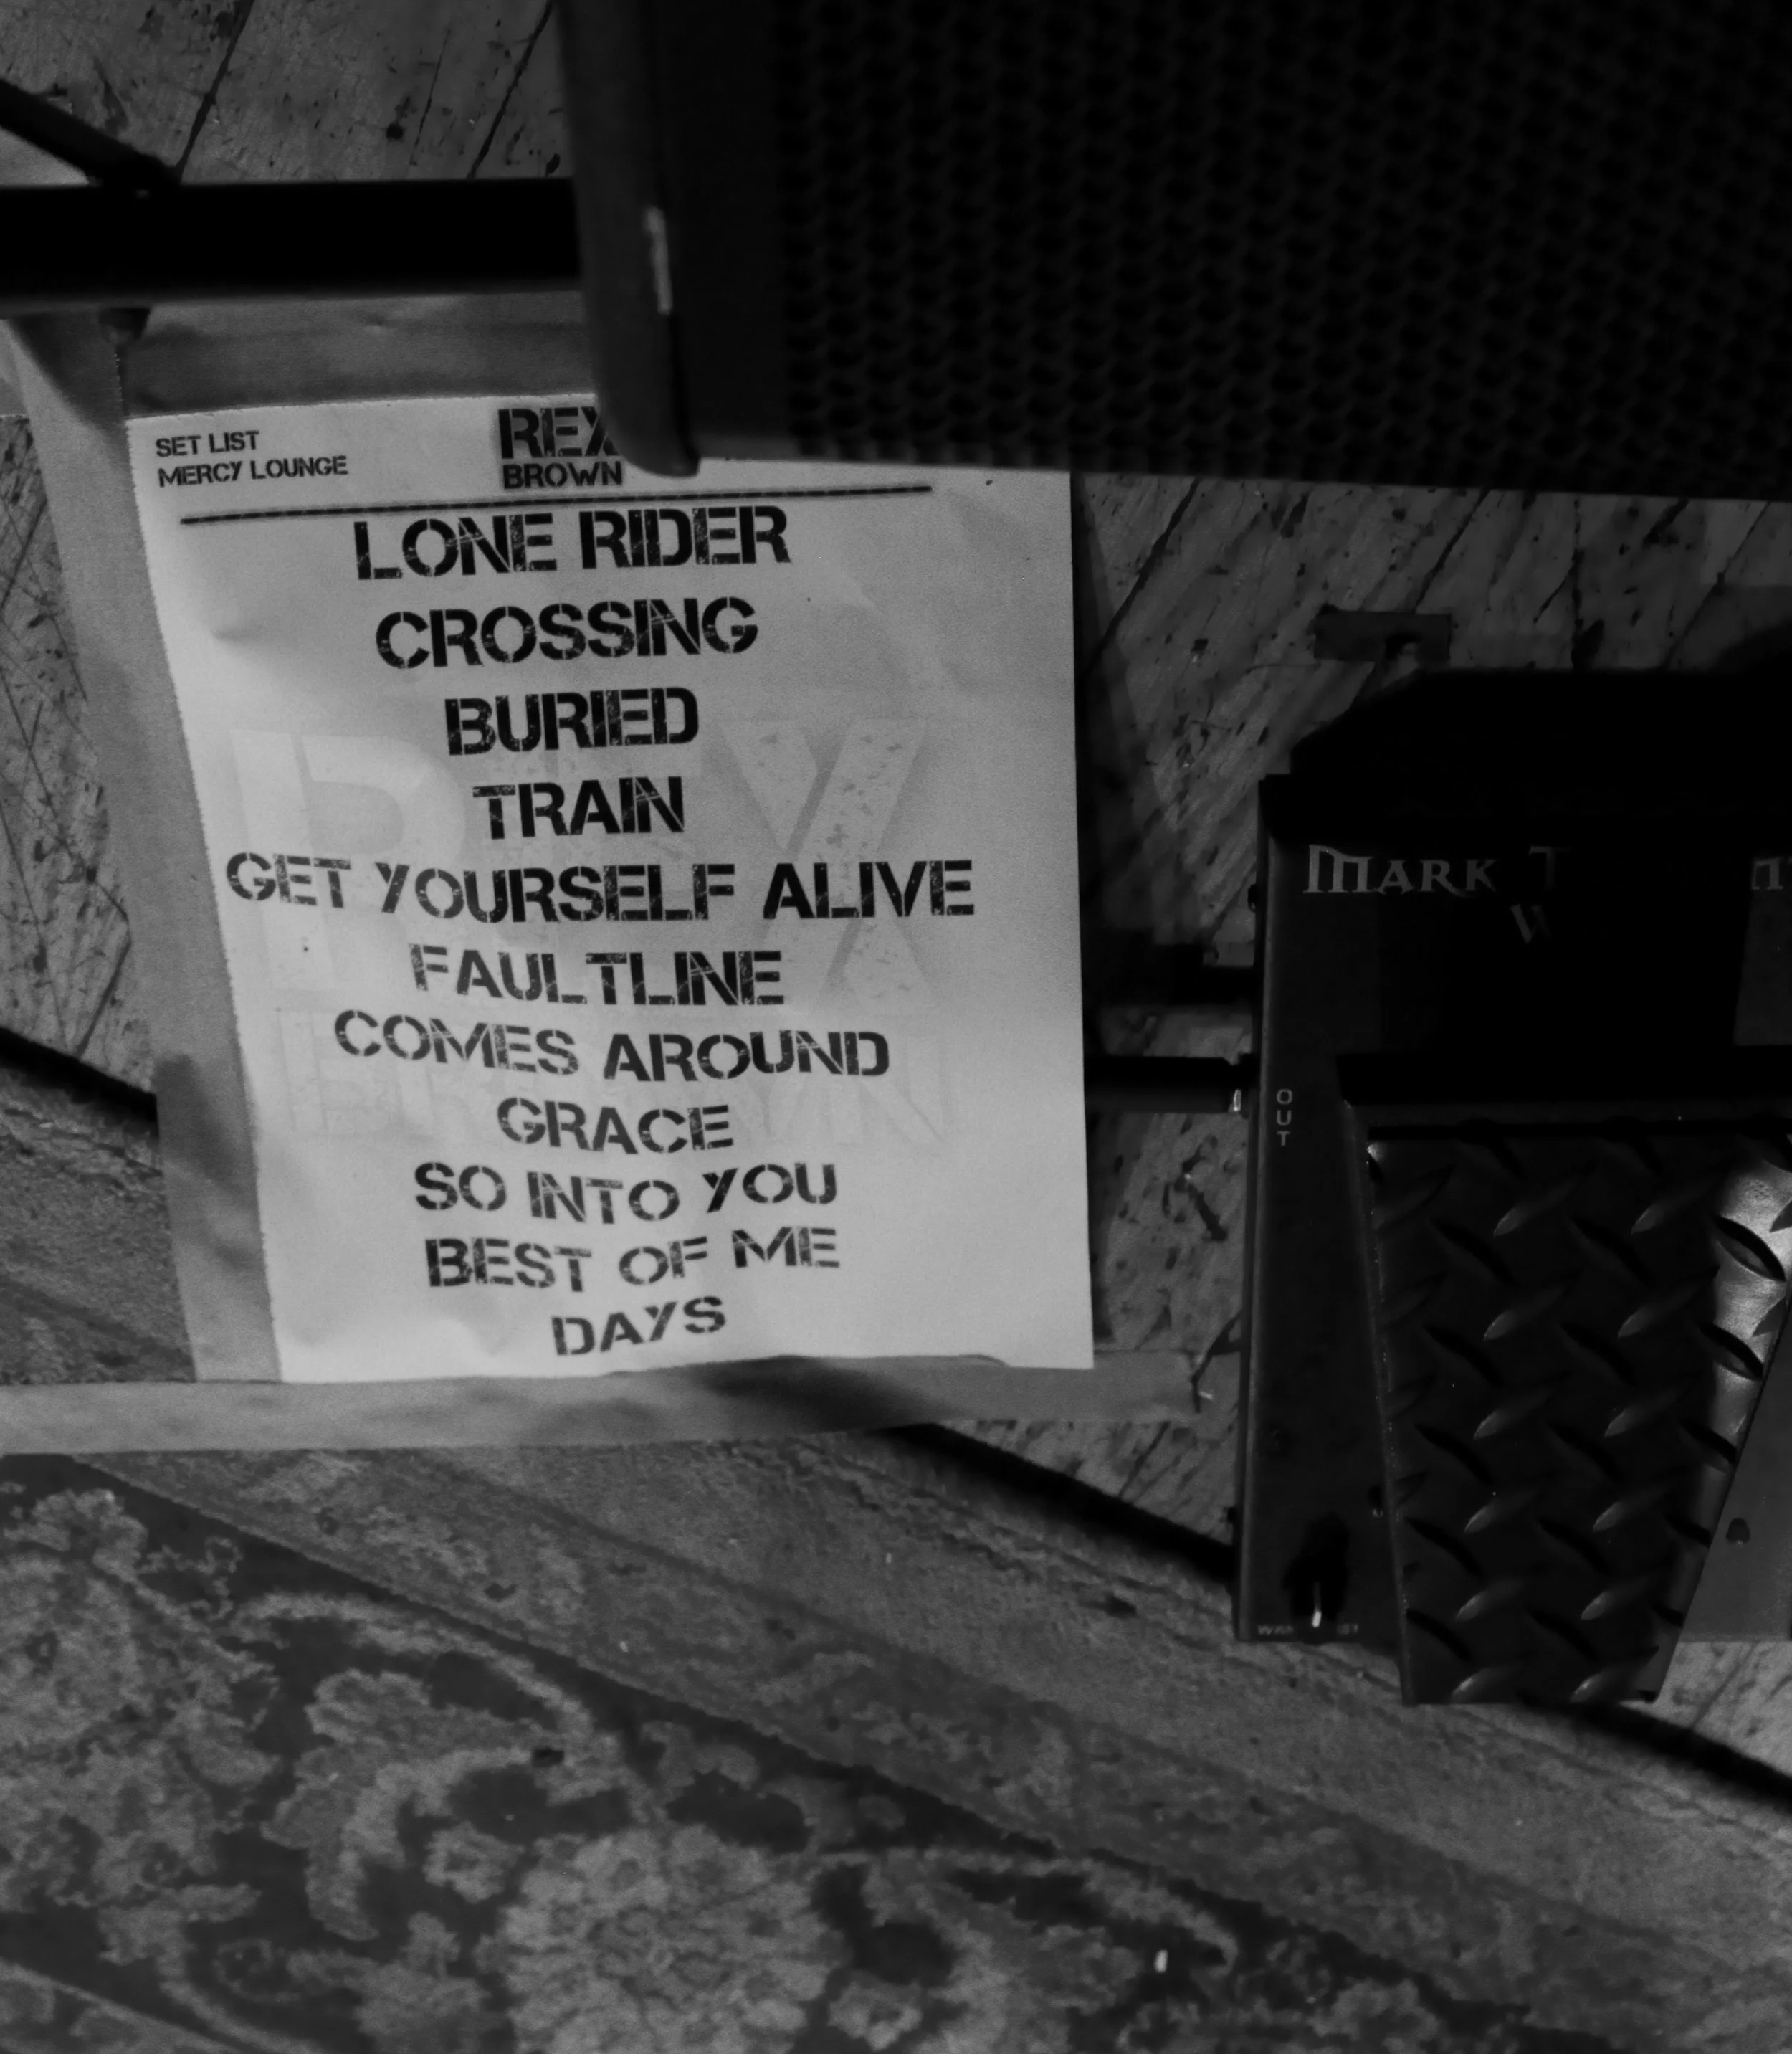 SET LIST
MERCY LOUNGE
REX
BROWN
LONE RIDER
CROSSING
BURIED
TRAIN
GET YOURSELF ALIVE
FAULTLINE
COMES AROUND
GRACE
SO INTO YOU
BEST OF ME
DAYS
REX
BROWN
MARK
OUT